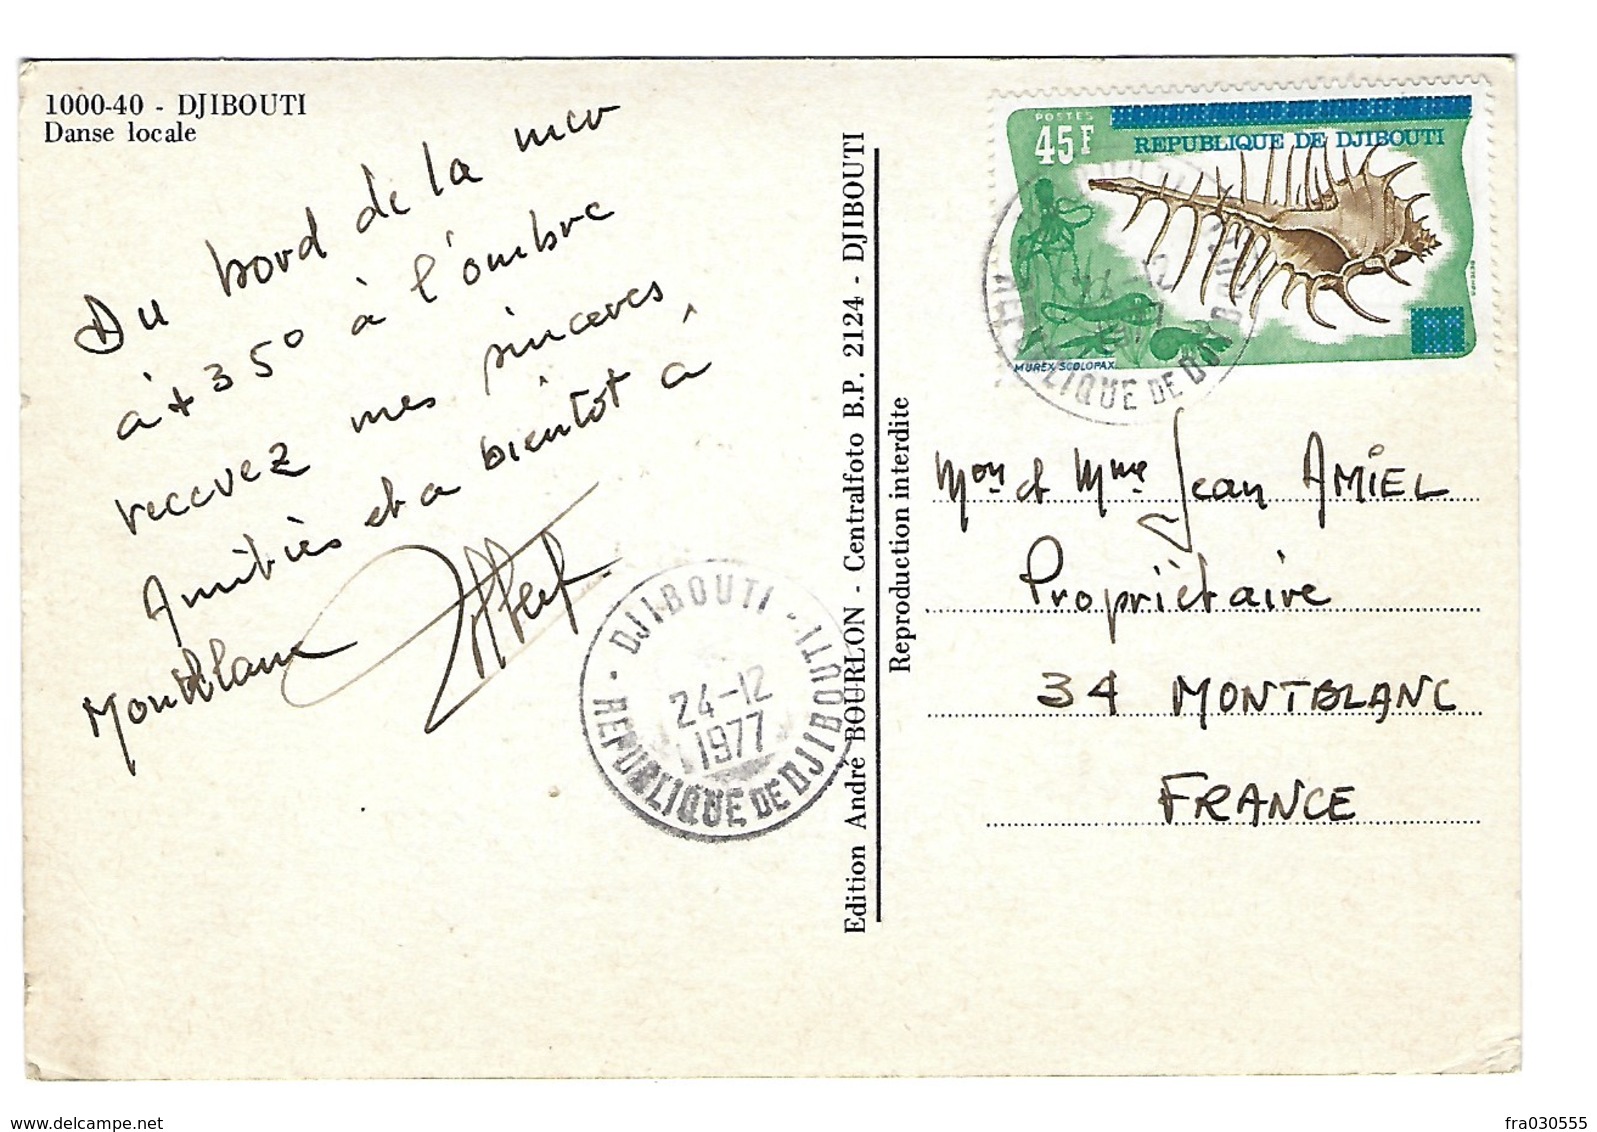 1000-40 - DJIBOUTI
Danse locale
Du bord de la mer
à + 35° à l'ombre
recevez mes sincères
Amitiés et a bientôt à
Montblanc
Edition André BOURLON - Centralfoto B.P. 2124 - DJIBOUTI
Reproduction interdite
POSTES
45F
REPUBLIQUE DE DJIBOUTI
MUREX SCOLOPAX
Mon et Mme Jean AMIEL
Propriétaire
34 MONTBLANC
FRANCE
DJIBOUTI - REPUBLIQUE DE DJIBOUTI
24-12
1977
www.delcampe.net
fra030555